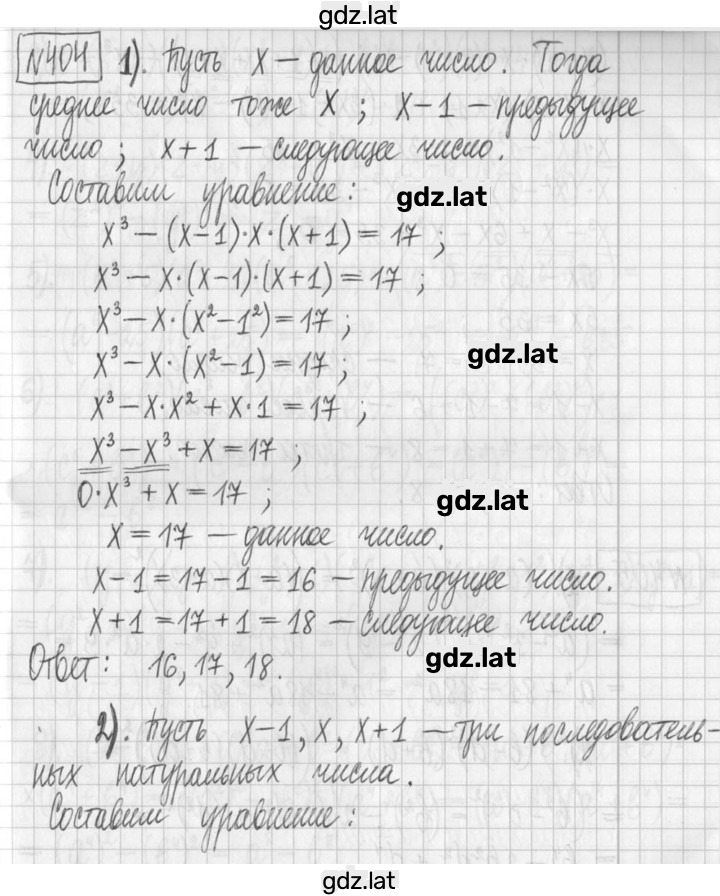 gdz.lat
№404 1). Пусть x – данное число. Тогда
среднее число тоже x ; x-1 – предыдущее
число ; x+1 – следующее число.
Составим уравнение :
gdz.lat
x³ – (x-1)·x·(x+1) = 17 ;
x³ – x·(x-1)·(x+1) = 17 ;
x³ – x·(x²-1²) = 17 ;
gdz.lat
x³ – x·(x²-1) = 17 ;
x³ – x·x² + x·1 = 17 ;
x³ – x³ + x = 17 ;
0·x³ + x = 17 ;
gdz.lat
x = 17 – данное число.
x-1 = 17-1 = 16 – предыдущее число.
x+1 = 17+1 = 18 – следующее число.
Ответ : 16, 17, 18.
gdz.lat
2). Пусть x-1, x, x+1 – три последователь-
ных натуральных числа.
Составим уравнение :
gdz.lat